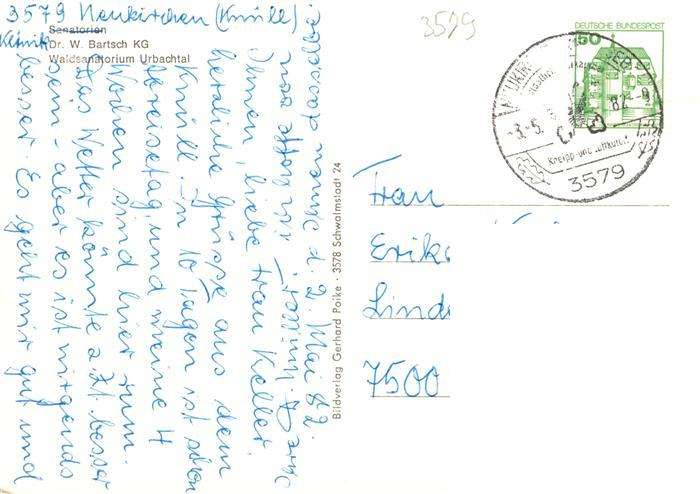 3579 Neukirchen (Knüll)
3579
Senatorien
Klinik Dr. W. Bartsch KG
Waldsanatorium Urbachtal
d. 2. Mai 82.
Ihnen, liebe Frau Keller
herzliche Grüße aus dem
Knüll. In 10 Tagen ist schon
Abreisetag und meine 4
Wochen sind hier rum.
Das Wetter könnte z. Zt. besser
sein - aber es ist nirgends
besser. Es geht mir gut und
Ihnen dasselbe
Bildverlag Gerhard Poike · 3578 Schwalmstadt 24
DEUTSCHE BUNDESPOST
50
-3.-5.
82-9
Kneipp- und Luftkurort
3579
Frau
Erika
Lind
7500